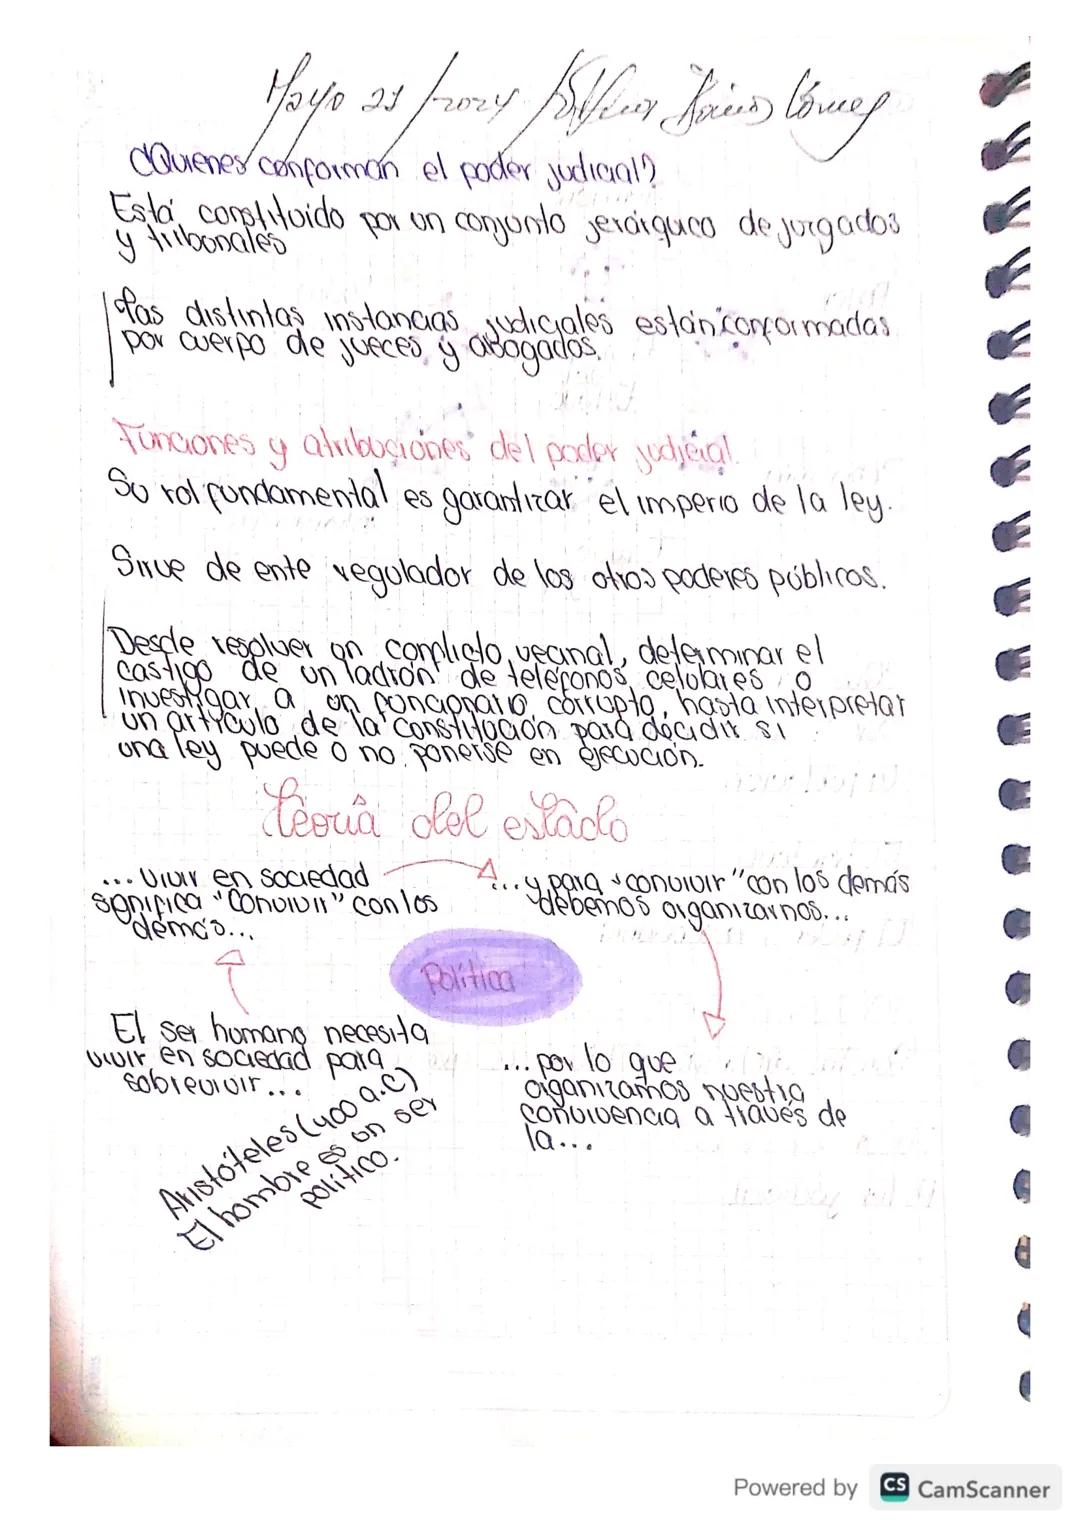 Mayo 21/2024
¿Quienes conforman el poder judicial?
Está constituido por un conjunto jerárquico de juzgados
y tribunales
las distintas instancias judiciales están conformadas
por cuerpo de jueces y abogados.
Funciones y atribuciones del poder judicial.
Su rol fundamental es garantizar el imperio de la ley.
Sirve de ente regulador de los otros poderes públicos.
Desde resolver un conflicto vecinal, determinar el
castigo de un ladrón de teléfonos celulares o
investigar a un funcionario corrupto, hasta interpretar
un artículo de la Constitución para decidir si
una ley puede o no ponerse en ejecución.
teoria del estado
... vivir en sociedad
significa "convivir" con los
demás...
... y para "convivir" con los demás
debemos organizarnos...
Política
El ser humano necesita
vivir en sociedad para
sobrevivir...
... por lo que
organizamos nuestra
convivencia a través de
la...
Aristóteles (400 a.C)
El hombre es un ser
político.
Powered by CS CamScanner